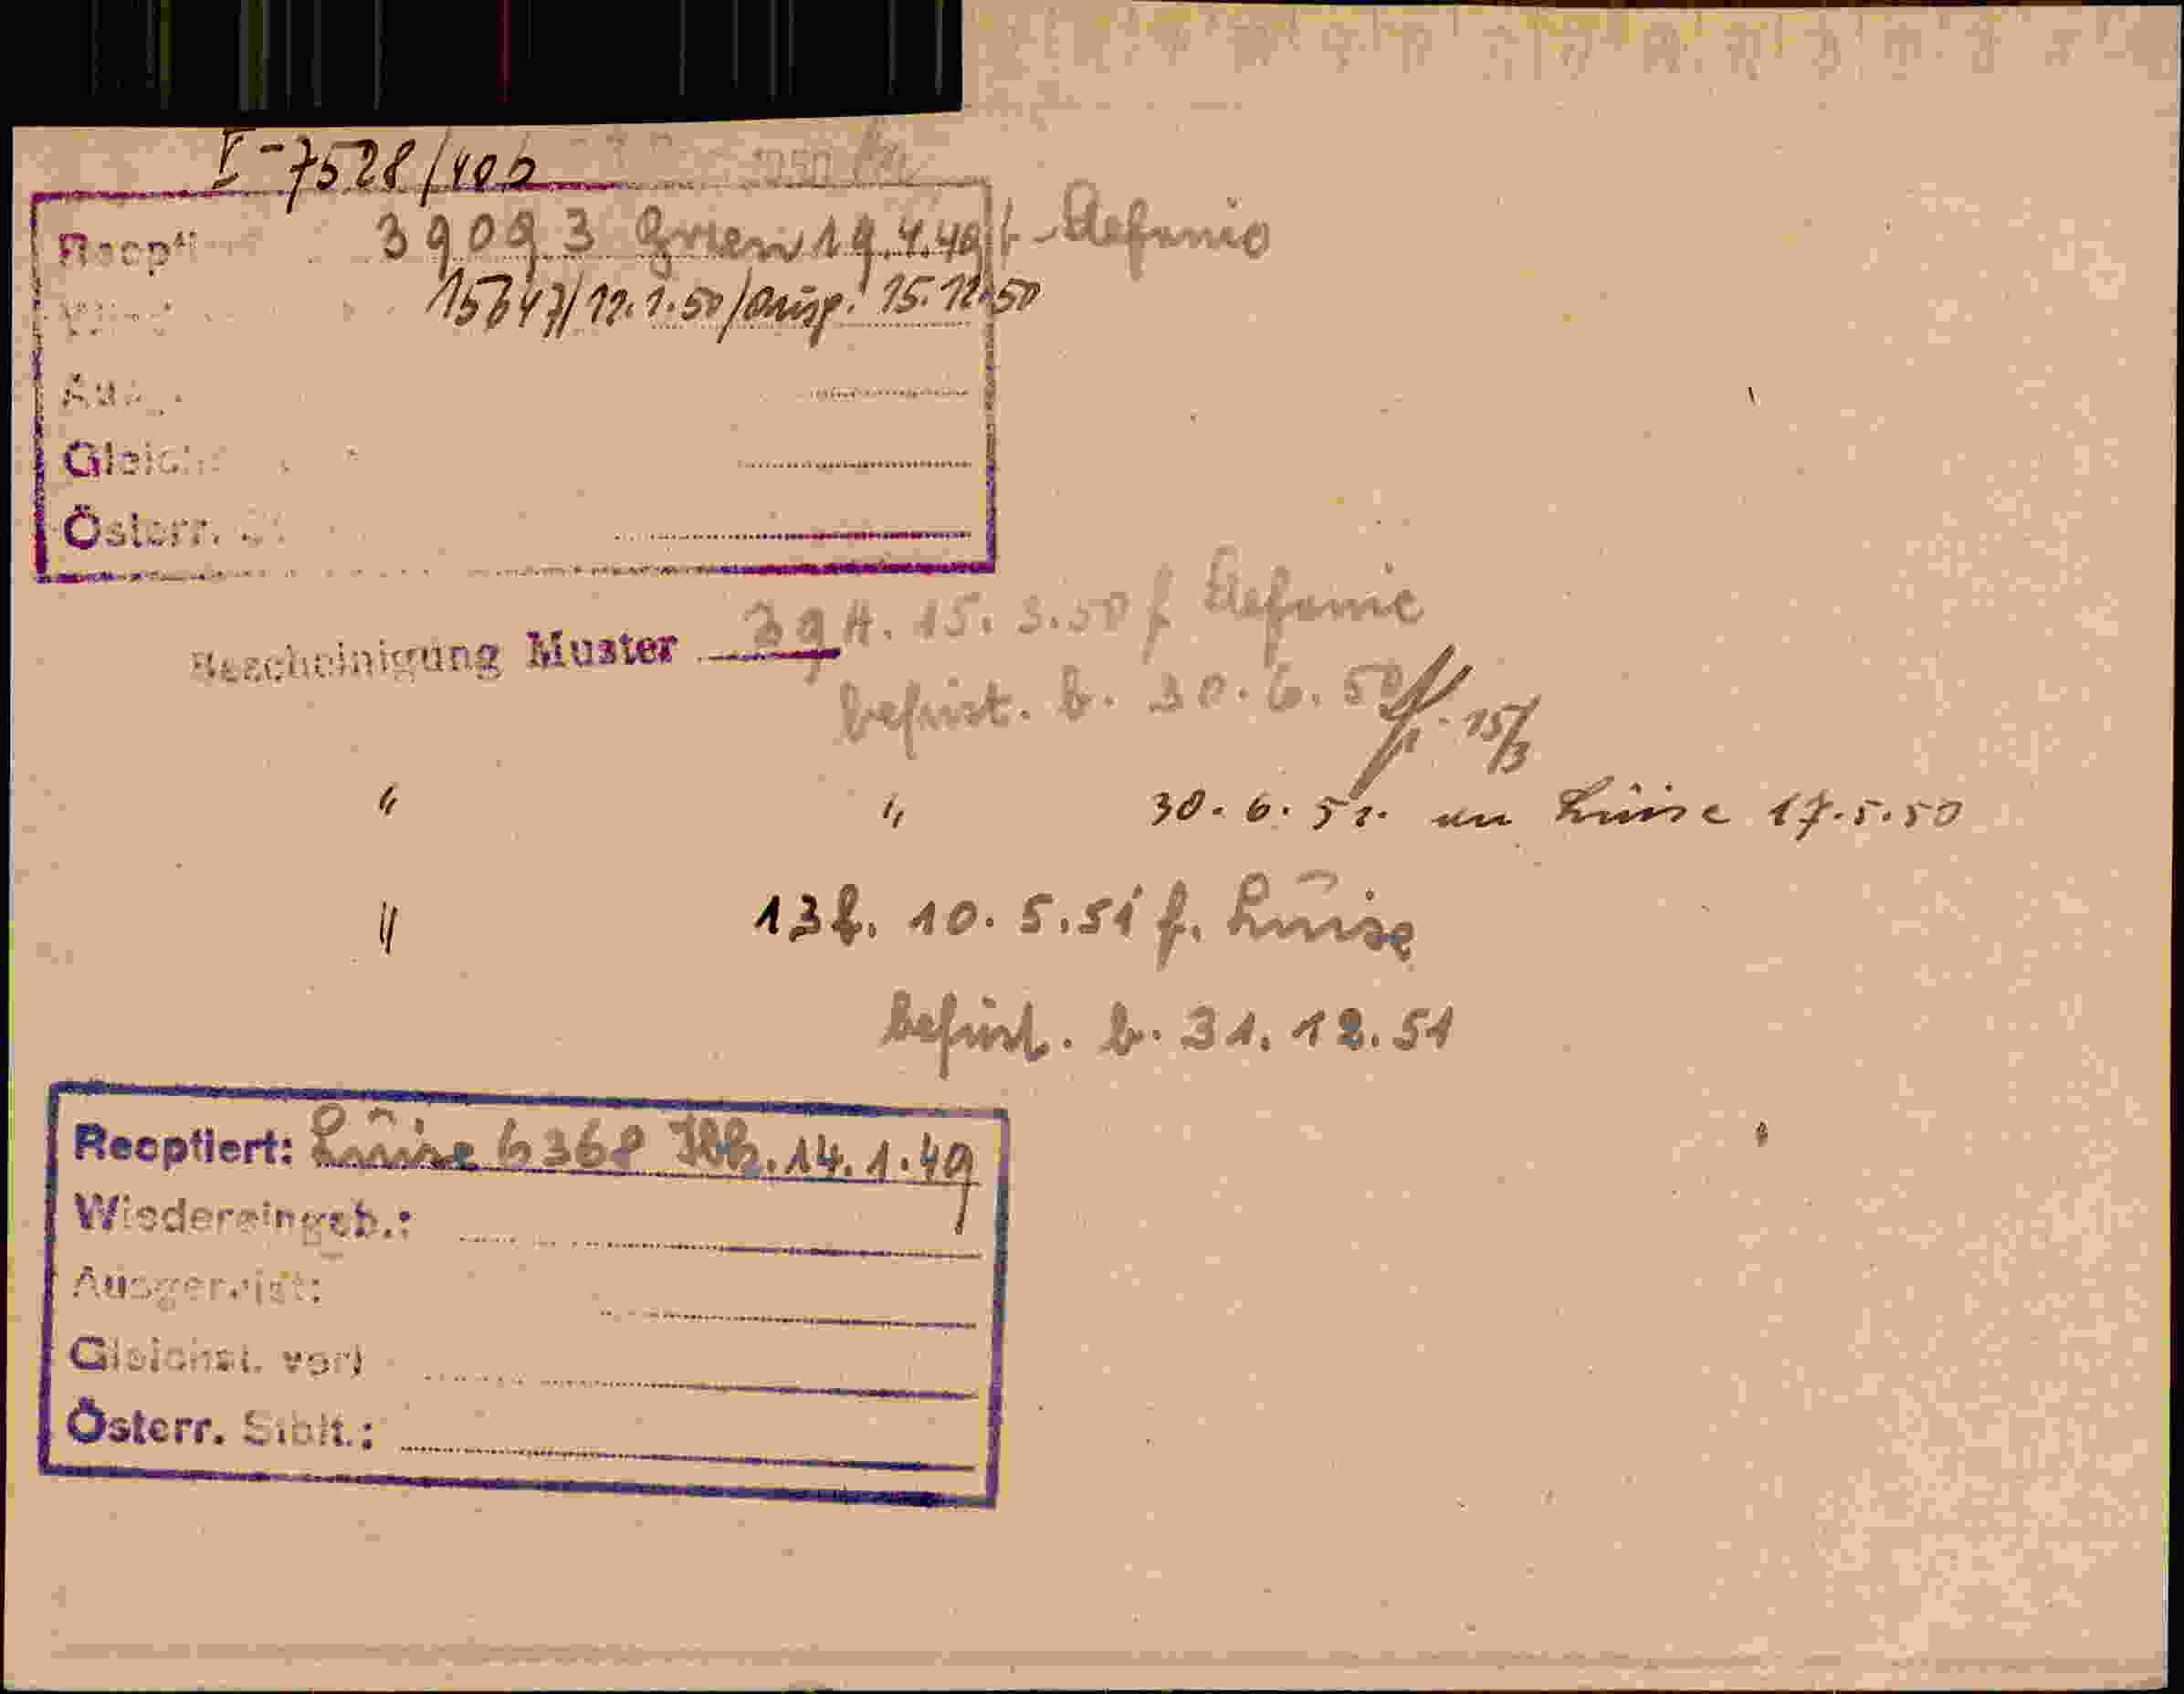 I-7528/40b
39093 19.4.49 f. Stefanie
12.1.50/ausg. 15.12.50
Gleich
Österr.
Bescheinigung Muster 39 A. 15. 3.50 f. Stefanie
befrist. b. 30. 6. 50 15/3
" " 30. 6. 51. an Luise 17.5.50
" 13 b. 10. 5. 51 f. Luise
befrist. b. 31. 12. 51
Reoptiert: Luise 6368 14. 1. 49
Wiedereingeb.:
Ausgereist:
Gleichst. vorl
Österr. Stblt.: